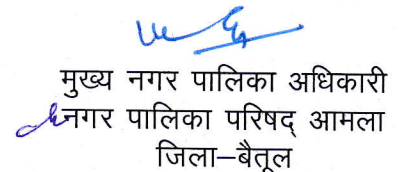 मुख्य नगर पालिका अधिकारी
नगर पालिका परिषद् आमला
जिला–बैतूल